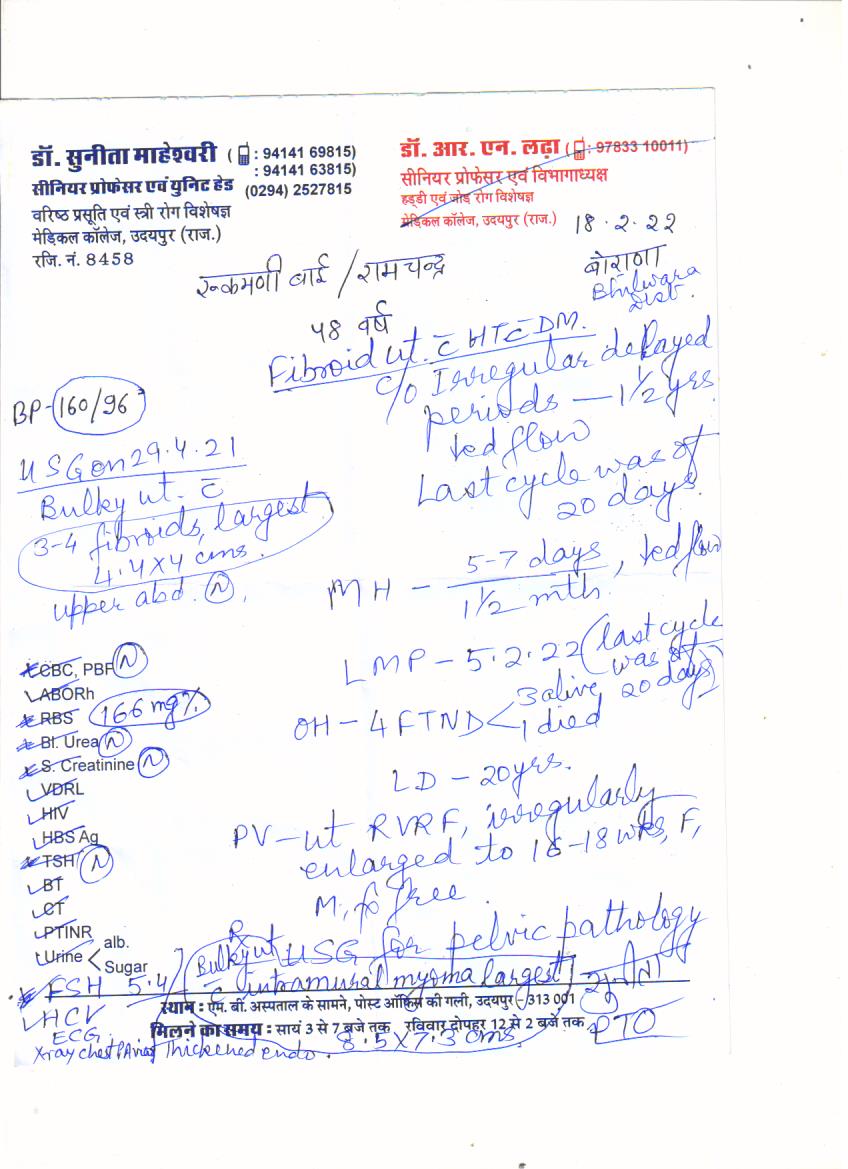 डॉ. सुनीता माहेश्वरी ( : 94141 69815)
: 94141 63815)
सीनियर प्रोफेसर एवं युनिट हेड (0294) 2527815
वरिष्ठ प्रसूति एवं स्त्री रोग विशेषज्ञ
मेडिकल कॉलेज, उदयपुर (राज.)
रजि. नं. 8458
डॉ. आर. एन. लढ़ा ( : 97833 10011)
सीनियर प्रोफेसर एवं विभागाध्यक्ष
हड्डी एवं जोड़ रोग विशेषज्ञ
मेडिकल कॉलेज, उदयपुर (राज.)
18.2.22
रूकमणी बाई / रामचन्द्र
बोराणा
Bhilwara
Dist.
48 वर्ष
Fibroid ut. c̄ HT c̄ DM.
c/o Irregular delayed
periods — 1½ yrs
ted flow
Last cycle was of
20 days.
BP - 160/96
USG on 29.4.21
Bulky ut. c̄
3-4 fibroids, largest
4.4 x 4 cms.
upper abd. (N),
MH - 5-7 days / 1½ mth. , ted flow
LMP - 5.2.22 (last cycle
was of
20 days)
OH - 4 FTND < 3 alive, 1 died
LD - 20 yrs.
PV - ut RVRF, irregularly
enlarged to 16-18 wks, F,
M, fx free.
CBC, PBF (N)
ABORh
RBS 166 mg%
Bl. Urea (N)
S. Creatinine (N)
VDRL
HIV
HBS Ag
TSH (N)
BT
CT
PTINR
Urine < alb.
Sugar
FSH 5.4
HCV
ECG
Xray chest PA view
Rx
USG for pelvic pathology
Bulky ut
c̄ intramural myoma largest
8.5 x 7.3 cms
Thickened endo.
सुनीता
PTO
स्थान : एम. बी. अस्पताल के सामने, पोस्ट ऑफिस की गली, उदयपुर - 313 001
मिलने का समय : सायं 3 से 7 बजे तक रविवार दोपहर 12 से 2 बजे तक